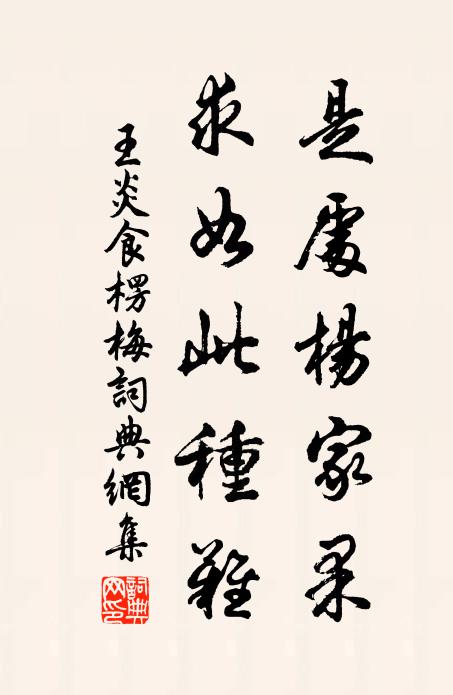 是處楊家果
求如此種難
王炎食楞梅詞典網集
詞典網印